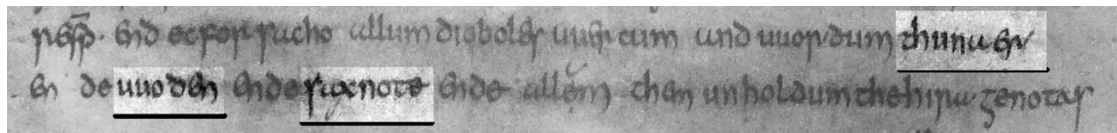 resp̄. end ec forsacho allum dioboles uuercum and uuordum thunaer
en de uuoden ende saxnote ende allem them unholdum thehira genotas